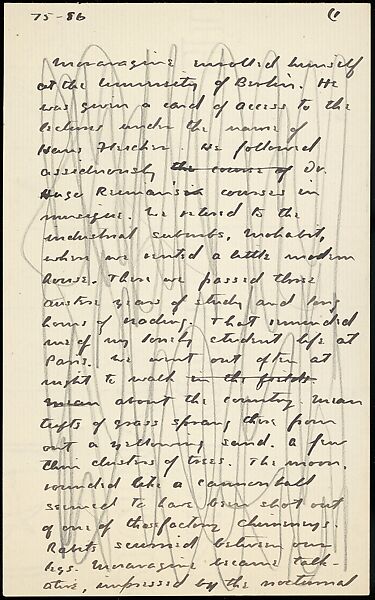 75-86
Moravagine enrolled himself
at the University of Berlin. He
was given a card of access to the
lectures under the name of
Hans Fleischer. He followed
assiduously the course of Dr.
Hugo Riemann's courses in
musique. We retired to the
industrial suburbs, Mohabit,
where we rented a little modern
house. There we passed three
austere years of study and long
hours of reading, That reminded
me of my lonely student life at
Paris. We went out often at
night to walk in the fields
mean about the country. Mean
tufts of grass sprang there from
out a yellowing sand. a few
thin clusters of trees. The moon,
rounded like a cannonball
seemed to have been shot out
of one of the factory chimneys.
Rabits scurried between our
legs. Moravagine became talk-
ative, impressed by the nocturnal